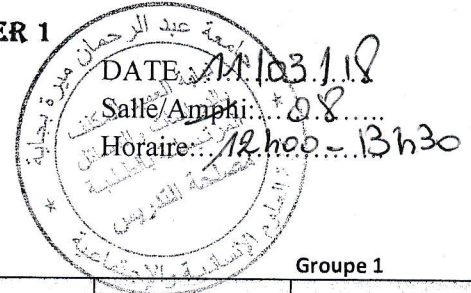 ER 1
DATE 11/03/18
Salle/Amphi:....08.....
Horaire:..12h00-13h30
جامعة عبد الرحمان ميرة بجاية
مصلحة التدريس
Groupe 1